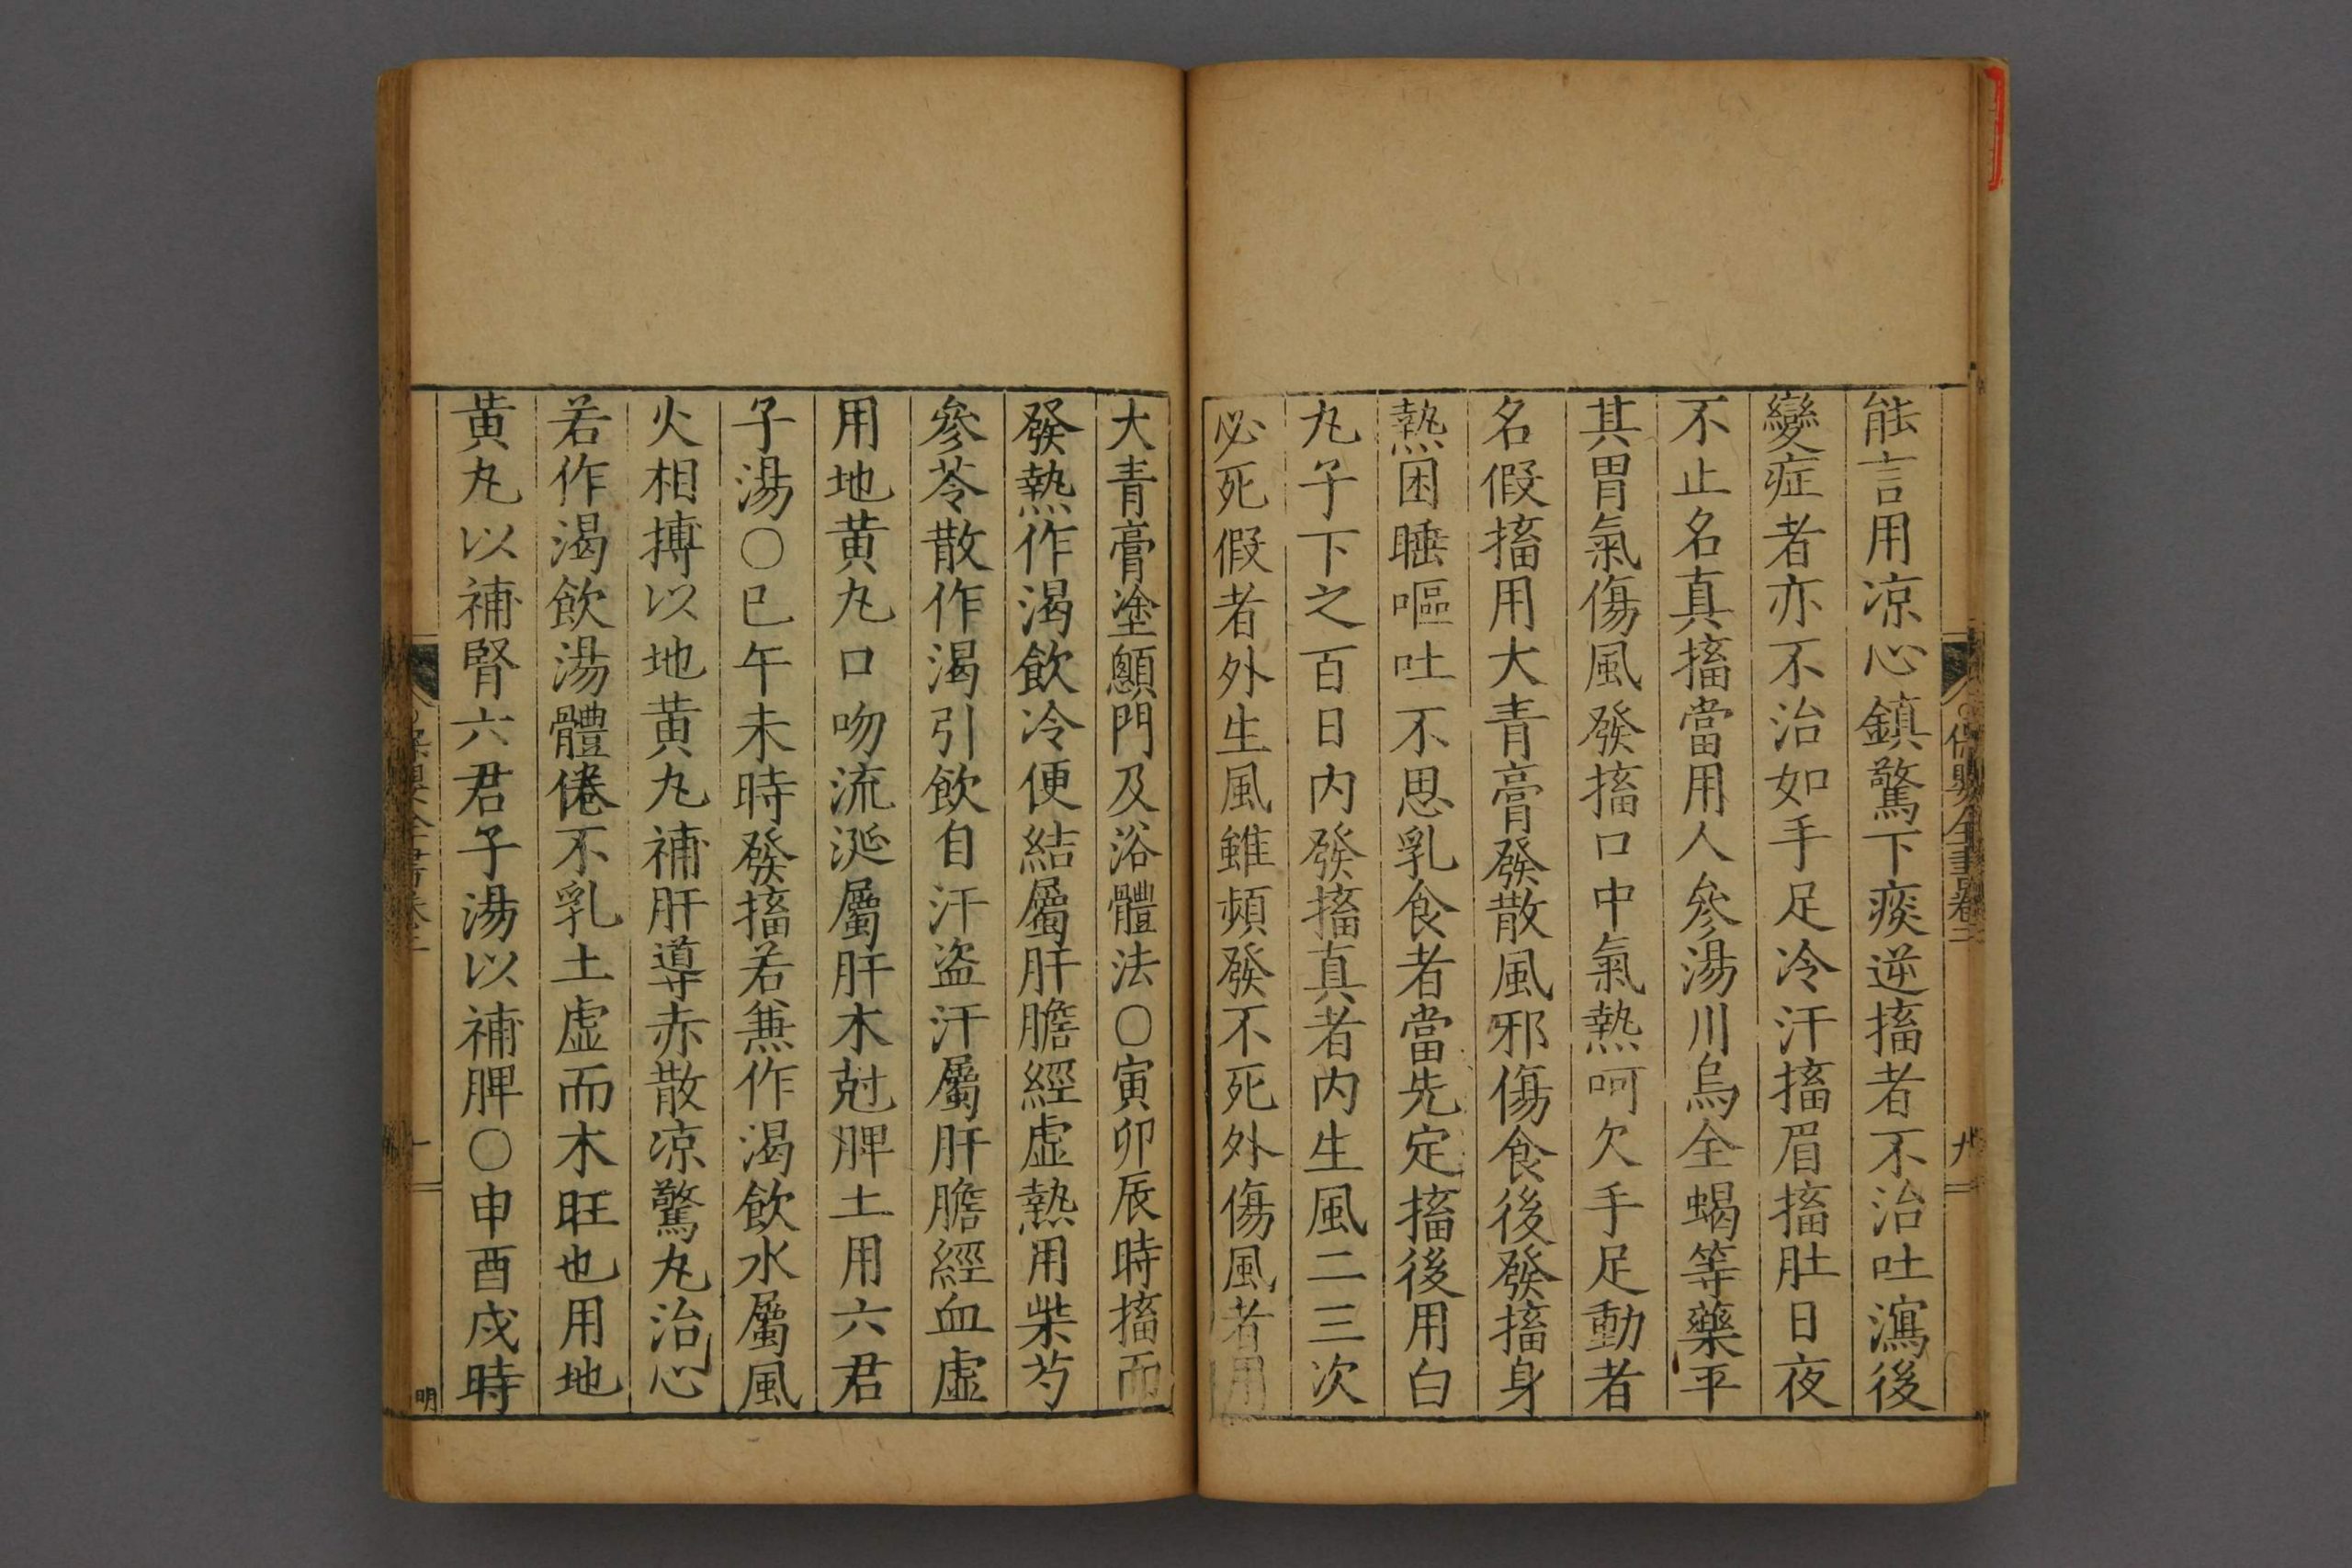 能言用凉心鎮驚下痰逆搐者不治吐瀉後
變症者亦不治如手足冷汗搐眉搐肚日夜
不止名真搐當用人參湯川烏全蝎等藥平
其胃氣傷風發搐口中氣熱呵欠手足動者
名假搐用大青膏發散風邪傷食後發搐身
熱困睡嘔吐不思乳食者當先定搐後用白
丸子下之百日内發搐真者内生風二三次
必死假者外生風雖頻發不死外傷風者用
大青膏塗顖門及浴體法○寅卯辰時搐而
發熱作渴飲冷便結屬肝膽經虛熱用柴芍
參苓散作渴引飲自汗盜汗屬肝膽經血虛
用地黄丸口吻流涎屬肝木尅脾土用六君
子湯○巳午未時發搐若兼作渴飲水屬風
火相搏以地黄丸補肝導赤散凉驚丸治心
若作渴飲湯體倦不乳土虛而木旺也用地
黄丸以補腎六君子湯以補脾○申酉戌時
保嬰全書卷二
九
明